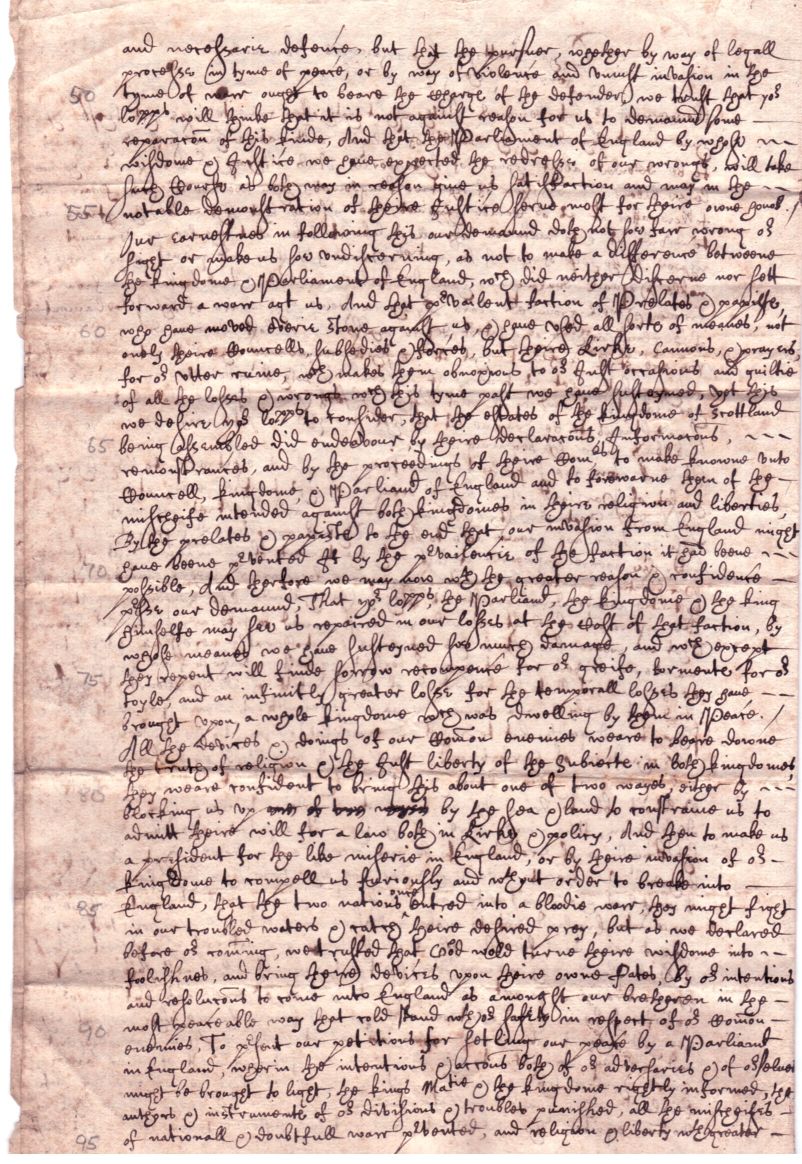 and necessarie defence, but that the pursuer, whether by way of legall
processe in tyme of peace, or by way of violence and uniust invasion in the
50 tyme of warr ought to beare the charge of the defender, we trust that yor
lopps will thinke that it is not against reason for us to demaund some –
reparacon of this kinde, And that the Parliament of England by whose ~~
wisdome & Justice we have expected the redresse of our wrongs, will take
such course as both may in reason give us satisfaction and may in the ~~
55 notable demonstration of theire Justice serve most for theire owne honor /
Our earnestnes in following this our demaund doth not soe farr wrong or
sight or make us soe undiscerning, as not to make a difference betweene
the kingdome & Parliament of England, wch did neither discerne nor sett
forward a warr agt us, And that prvalent faction of Prelates & papists,
60 who have moved everie stone against us, & have used all sorts of meanes, not
onely theire Councells, subsedies & forces, but theire kirke, Cannons, & prayers,
for or utter ruine, wch makes them obnoxious to or Just occasions and guiltie
of all the losses & wrongs wch this tyme past we have susteyned, yet this
we desire yor lopps to consider, that the estates of the kingdome of Scottland
65 being assembled did endeavour by theire declaracons, Informacons, ~~~
remonstrances, and by the proceedings of theire Comrs to make knowne unto
Councell, kingdome, & Parliamt of England and to forewarne them of the –
mischeife intended against both kingdomes in theire religion and liberties,
By the prelates & papists to the end that our invasion from England might
70 have beene prvented If by the prvailencie of the faction it had beene ~~
possible, And therfore we may now wth the greater reason & confidence –
presse our demaund, That yor lopps, the Parliamt, the kingdome & the king
himselfe may see us repaired in our losses at the cost of that faction, by
whose meanes we have susteyned soe much damage, and wch except
75 they repent will finde sorrow recompence for or greife, torments for or
toyle, and an infinitly greater losse for the temporall losses they have ~~
brought upon, a whole kingdome wch was dwelling by them in Peace. /
All the devices & doings of our Comon enemies weare to beare downe
the truth of religion & the Just liberty of the subiecte in both kingdomes,
80 they weare confident to bring this about one of two wayes, either by ~~
blocking us up by the sea & land to constraine us to
admitt theire will for a law both in kirke & policy, And then to make us
a president for the like miserie in England, or by theire invasion of or –
kingdome to compell us furiously and wthout order to breake into –
85 England, that the two nations once entred into a bloodie warr, they might fight
in our troubled waters & catch theire desired prey, but as we declared
before or coming, we trusted that God wold turne theire wisdome into ~~
foolishnes, and bring theire devices upon theire owne Pates, by or intentions
and resolucons to come into England as amongst our brethren in the –
90 most peaceable way that cold stand wth or safety in respect of or Comon –
enemies, To prsent our petitions for setling our peace by a Parliamt
in England, wherin the intentions & accons both of or adversaries & of orselves
might be brought to light, the kings Matie & the kingdome rightly informed, the
authors & instruments of or divisions & troubles punished, all the mischeifes –
95 of nationall & doubtfull warr prvented, and religion & liberty wth greater –